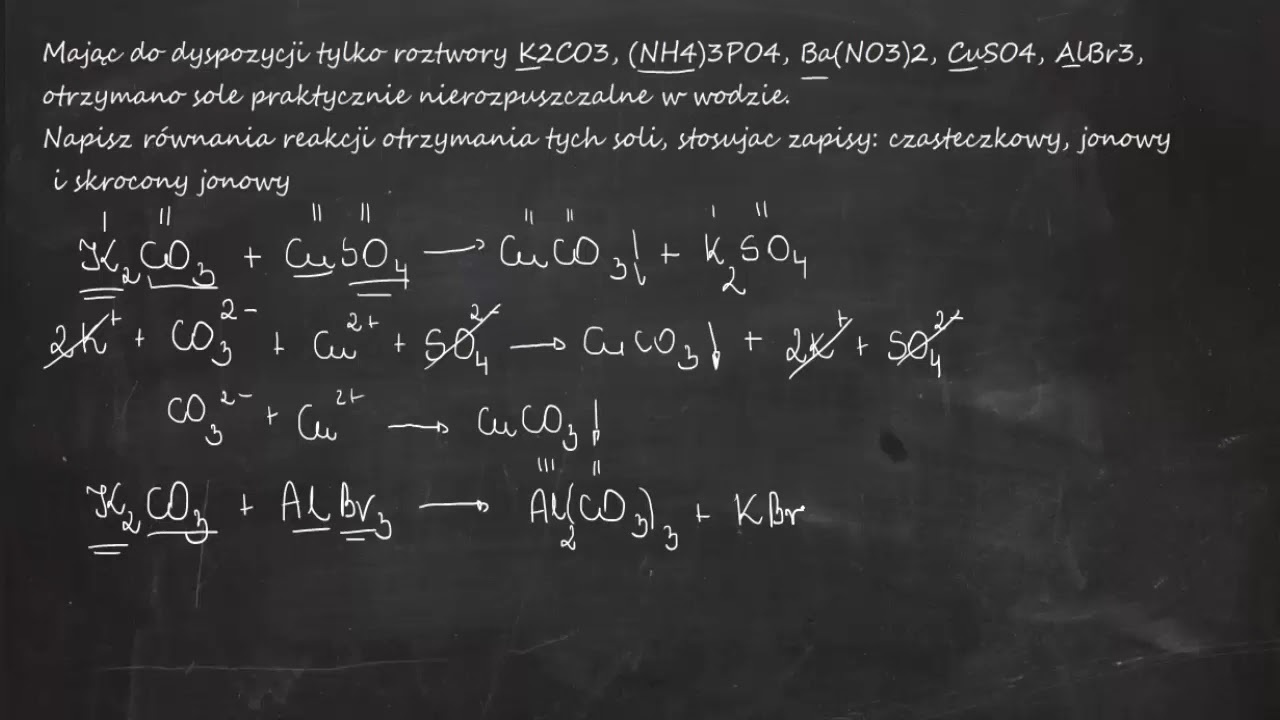 Mając do dyspozycji tylko roztwory K2CO3, (NH4)3PO4, Ba(NO3)2, CuSO4, AlBr3,
otrzymano sole praktycznie nierozpuszczalne w wodzie.
Napisz równania reakcji otrzymania tych soli, stosujac zapisy: czasteczkowy, jonowy
i skrocony jonowy
I II II II II II I II
K₂CO₃ + CuSO₄ → CuCO₃↓ + K₂SO₄
2K⁺ + CO₃²⁻ + Cu²⁺ + SO₄²⁻ → CuCO₃↓ + 2K⁺ + SO₄²⁻
CO₃²⁻ + Cu²⁺ → CuCO₃↓
III II
K₂CO₃ + AlBr₃ → Al₂(CO₃)₃ + KBr